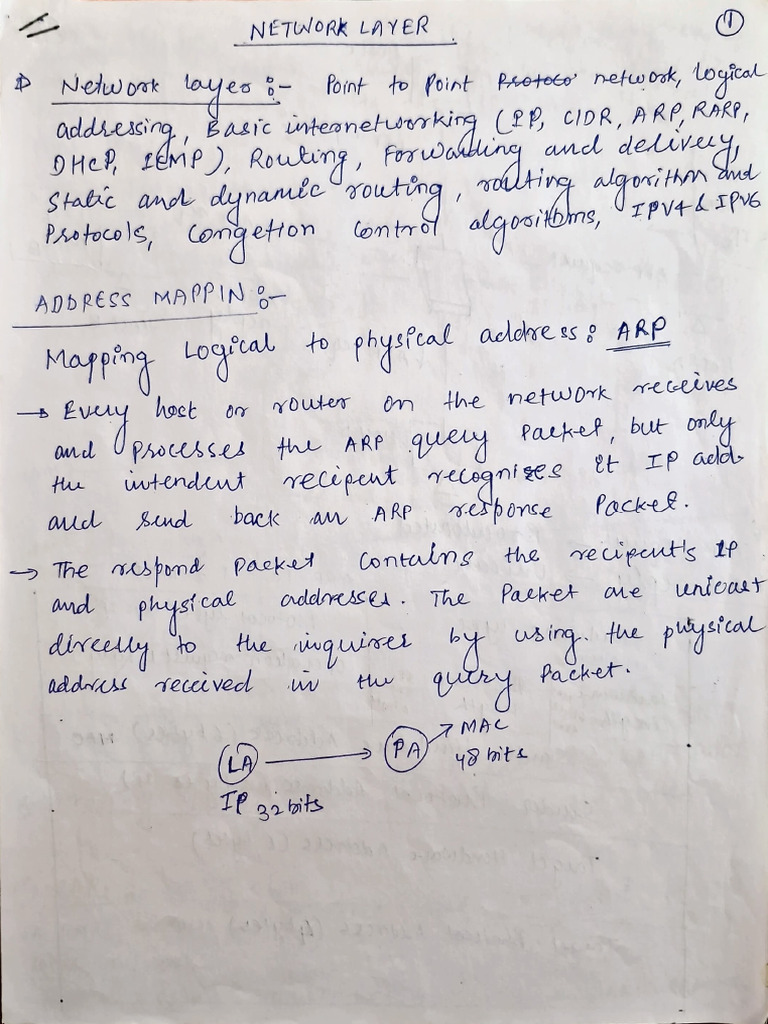 NETWORK LAYER
1
1) Network layer :- Point to Point Protoco network, logical
addressing, Basic internetworking (IP, CIDR, ARP, RARP,
DHCP, ICMP), Routing, Forwarding and delivery,
Static and dynamic routing, routing algorithm and
Protocols, Congetion Control algorithms, IPV4 & IPV6
ADDRESS MAPPIN :-
Mapping Logical to physical address: ARP
→ Every host or router on the network receives
and Processes the ARP query Packet, but only
the intendent recipent recognizes it IP add.
and send back an ARP response Packet.
→ The respond packet contains the recipent's IP
and physical addresses. The Packet are unicast
directly to the inquirer by using. the physical
address received in the query Packet.
LA → PA → MAC
48 bits
IP 32 bits